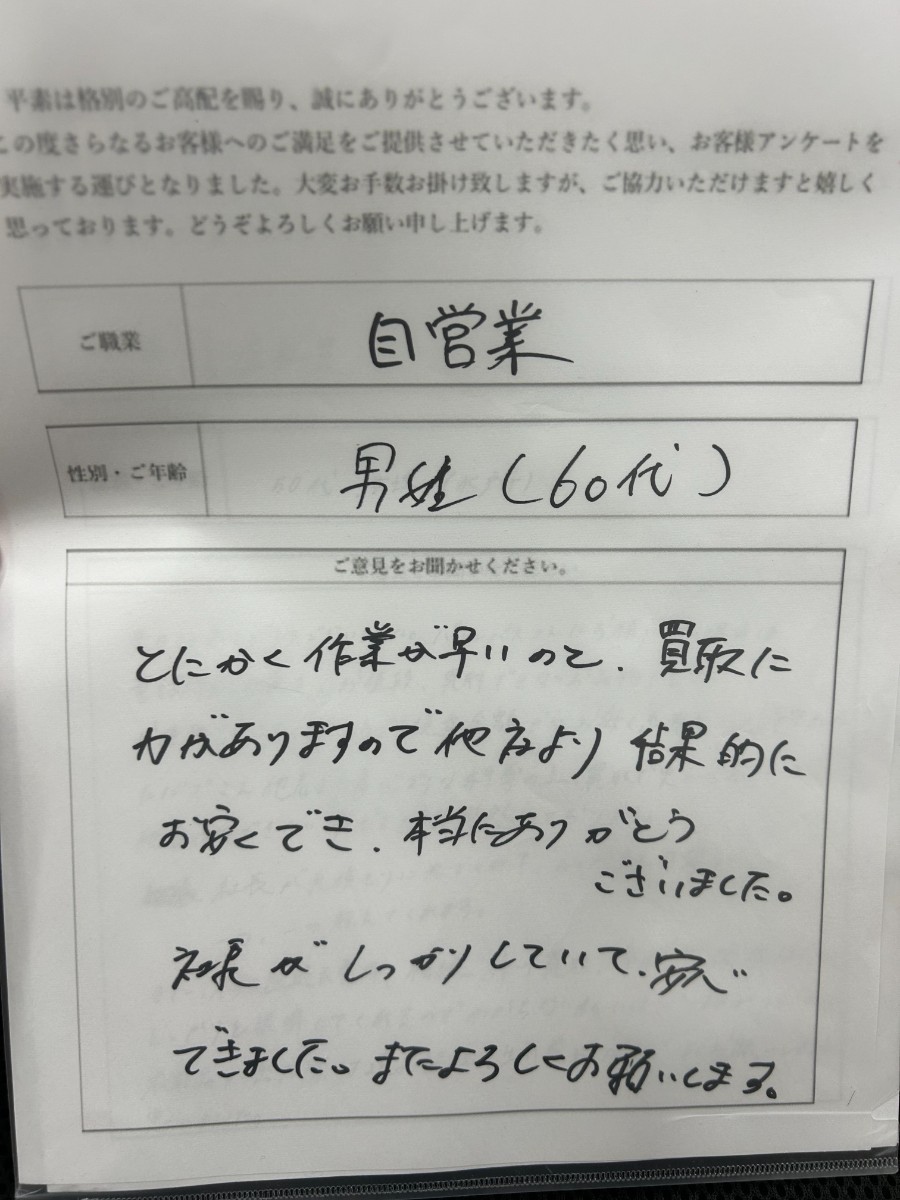 平素は格別のご高配を賜り、誠にありがとうございます。
この度さらなるお客様へのご満足をご提供させていただきたく思い、お客様アンケートを
実施する運びとなりました。大変お手数お掛け致しますが、ご協力いただけますと嬉しく
思っております。どうぞよろしくお願い申し上げます。
ご職業
自営業
性別・ご年齢
男性(60代)
ご意見をお聞かせください。
とにかく作業が早いのと、買取に
力がありますので他社より結果的に
お安くでき、本当にありがとう
ございました。
社長がしっかりしていて、安心
できました。またよろしくお願いします。